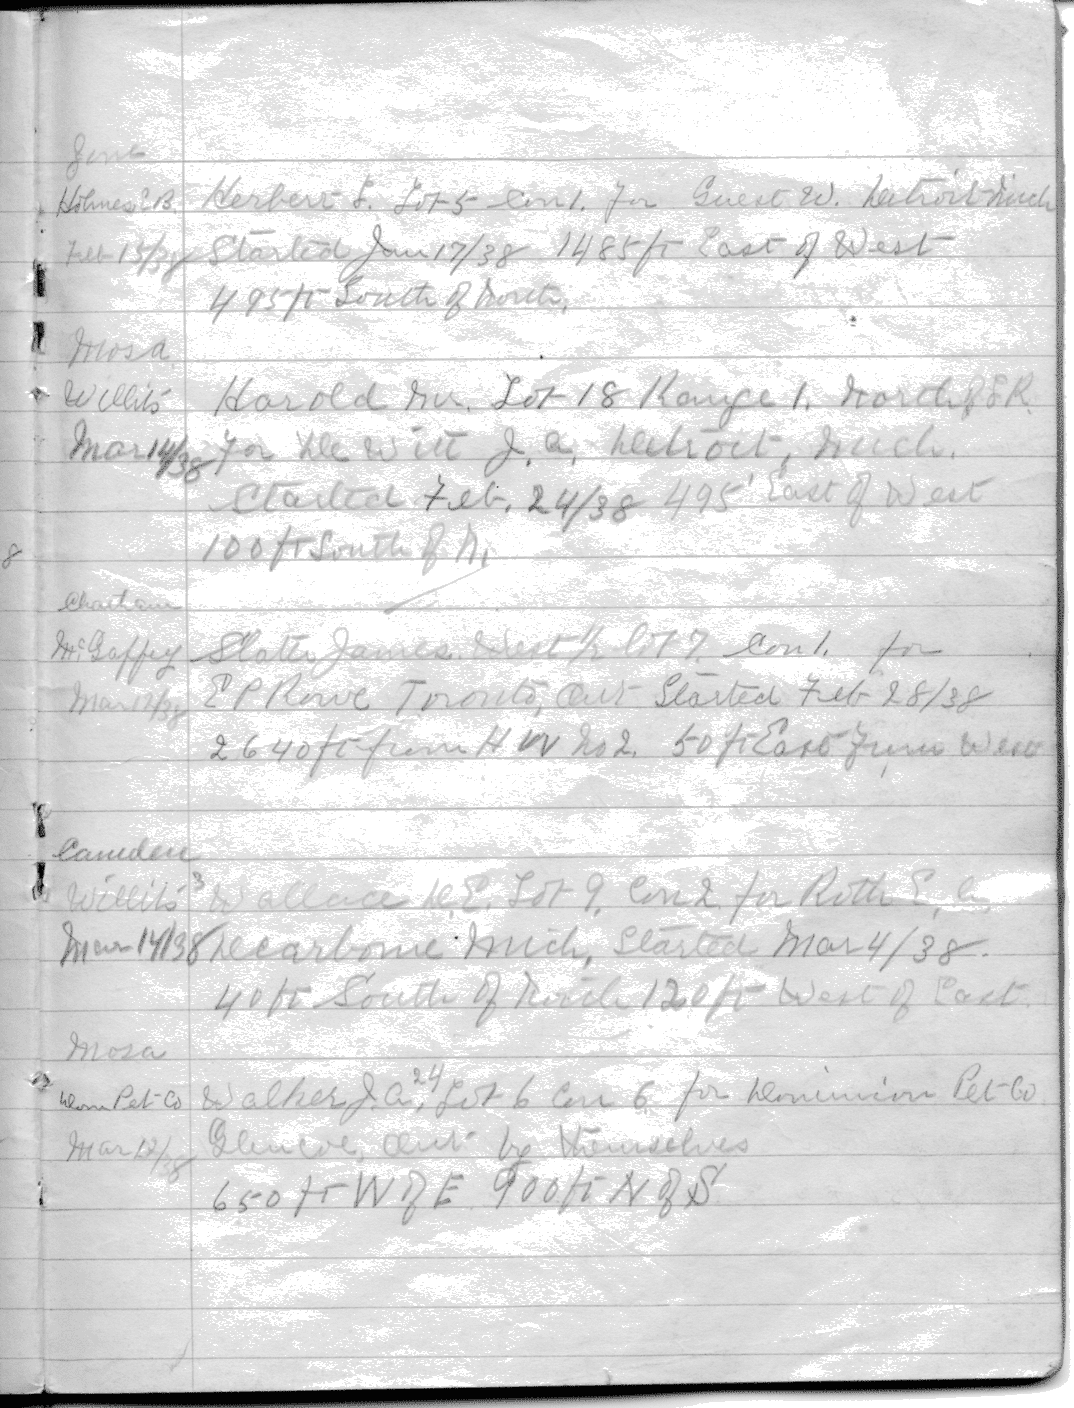 Holmes E.B. Herbert F. Lot 5 Con 1. For Guest W. Detroit Mich
Feb 15/38 Started Jan 17/38 1485 ft East of West
495 ft South of North.
Mosa
Willits Harold Lot 18 Range 1. North of L R.
Mar 14/38 For De Witt J. A. Detroit, Mich.
Started Feb. 24/38 495' East of West
100 ft South of N.
8
Chatham
McGaffey James West 1/2 lot 7. Con 1. for
Mar 12/38 E P Rowe Toronto, Ont Started Feb 28/38
2640 ft from H W No 2. 50 ft East From West
Camden
Willits 3 Wallace D.E. Lot 9. Con 2. for Roth E. A.
Mar 14/38 Dearborne Mich, Started Mar 4/38.
40 ft South of North 120 ft West of East.
Mosa
Dom Pet Co Walker J.A. 24 Lot 6 Con 6 for Dominion Pet Co.
Mar 12/38 Glencoe, Ont by themselves
650 ft W of E 900 ft N of S